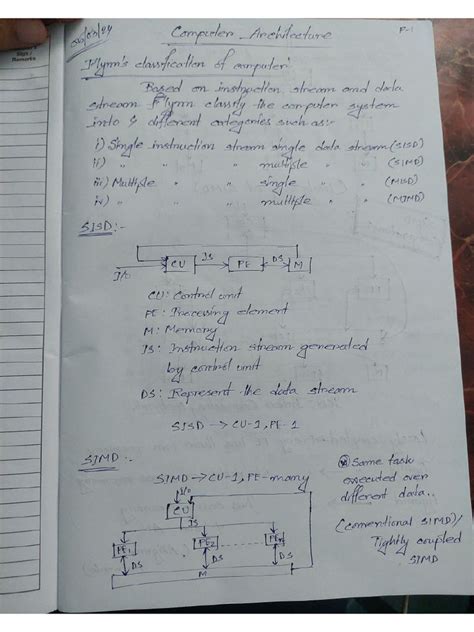 Sign /
Remarks
Computer Architecture
P-1
Flynn's classification of computer:
Based on instruction stream and data
stream Flynn classify the computer system
into 4 different categories such as:-
i) Single instruction stream single data stream (SISD)
ii) " " " multiple " (SIMD)
iii) Multiple " " single " (MISD)
iv) " " " multiple " (MIMD)
SISD:-
I/O CU IS PE DS M
CU: Control unit
PE: Processing element
M: Memory
IS: Instruction stream generated
by control unit
DS: Represent the data stream
SISD -> CU-1, PE-1
SIMD:-
SIMD -> CU-1, PE-many
I/O
CU
IS
PE1 PE2 PEn
DS DS DS
M
Same task
executed over
different data.
(conventional SIMD)/
Tightly coupled
SIMD